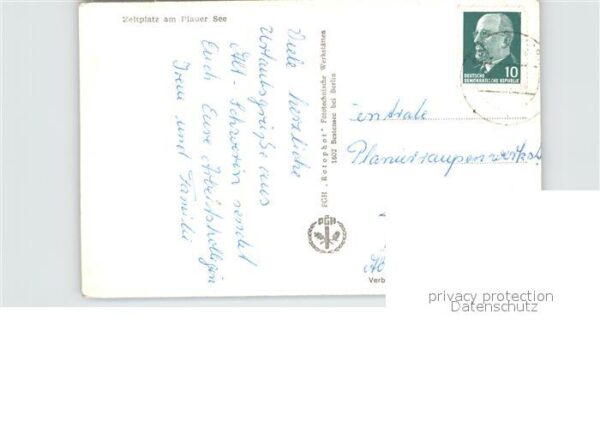 Zeltplatz am Plauer See
Viele herzliche
Urlaubsgrüße aus
Alt-Schwerin sendet
Euch Eure Arbeitskollegin
und Familie
PGH „Rotophot" Fototechnische Werkstätten
1602 Bestensee bei Berlin
PGH
10
DEUTSCHE
DEMOKRATISCHE REPUBLIK
Zentrale
Planierraupenwerkst
Verb
privacy protection
Datenschutz